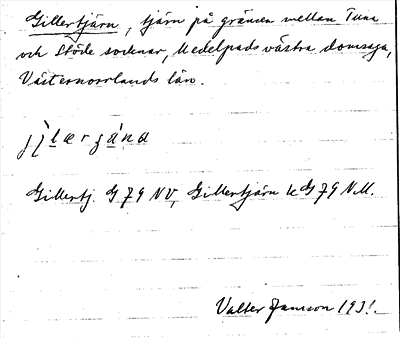 Gillertjärn, tjärn på gränsen mellan Tuna
och Stöde socknar, Medelpads västra domsaga,
Västernorrlands län.
Gillertj. G 79 NV, Gillertjärn G 79 N.V.
Valter Jansson 1931.